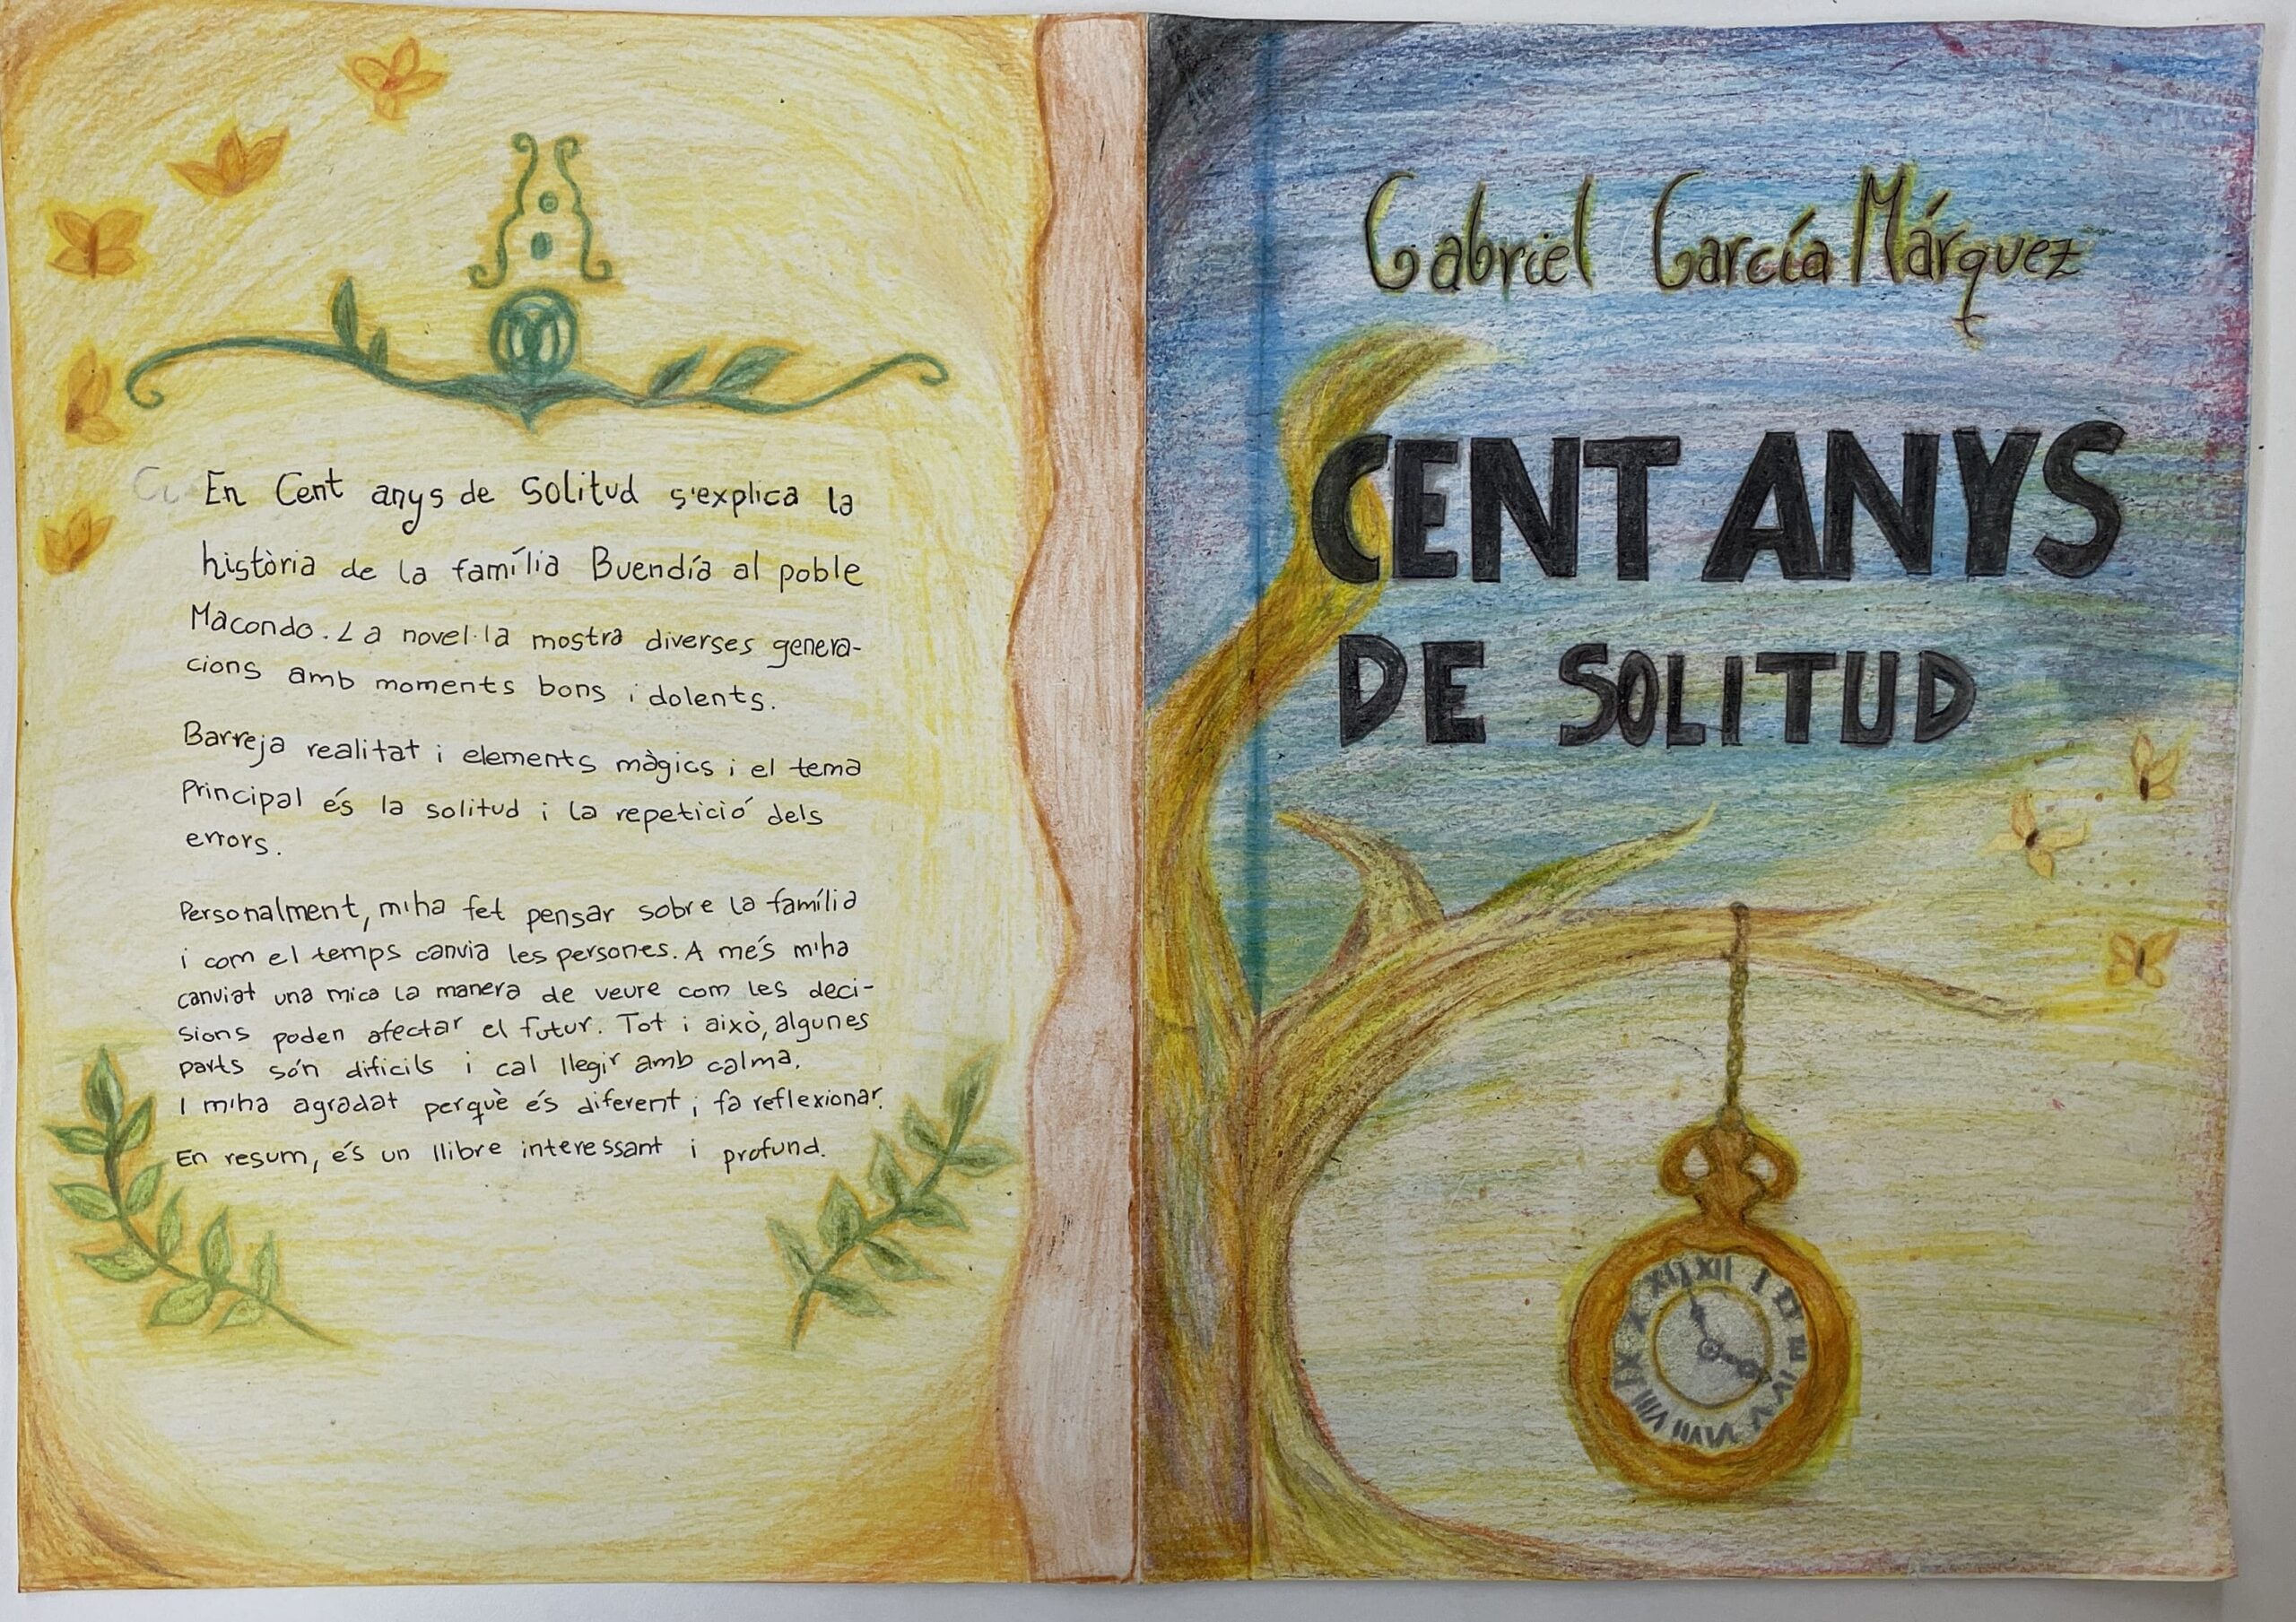 En Cent anys de Solitud s'explica la
història de la família Buendía al poble
Macondo. La novel·la mostra diverses genera-
cions amb moments bons i dolents.
Barreja realitat i elements màgics i el tema
Principal és la solitud i la repetició dels
errors.
Personalment, m'ha fet pensar sobre la família
i com el temps canvia les persones. A més m'ha
canviat una mica la manera de veure com les deci-
sions poden afectar el futur. Tot i això, algunes
parts són dificils i cal llegir amb calma.
I m'ha agradat perquè és diferent i fa reflexionar.
En resum, és un llibre interessant i profund.
Gabriel García Márquez
CENT ANYS
DE SOLITUD
XII
I
II
III
IV
V
VI
VII
VIII
IX
X
XI